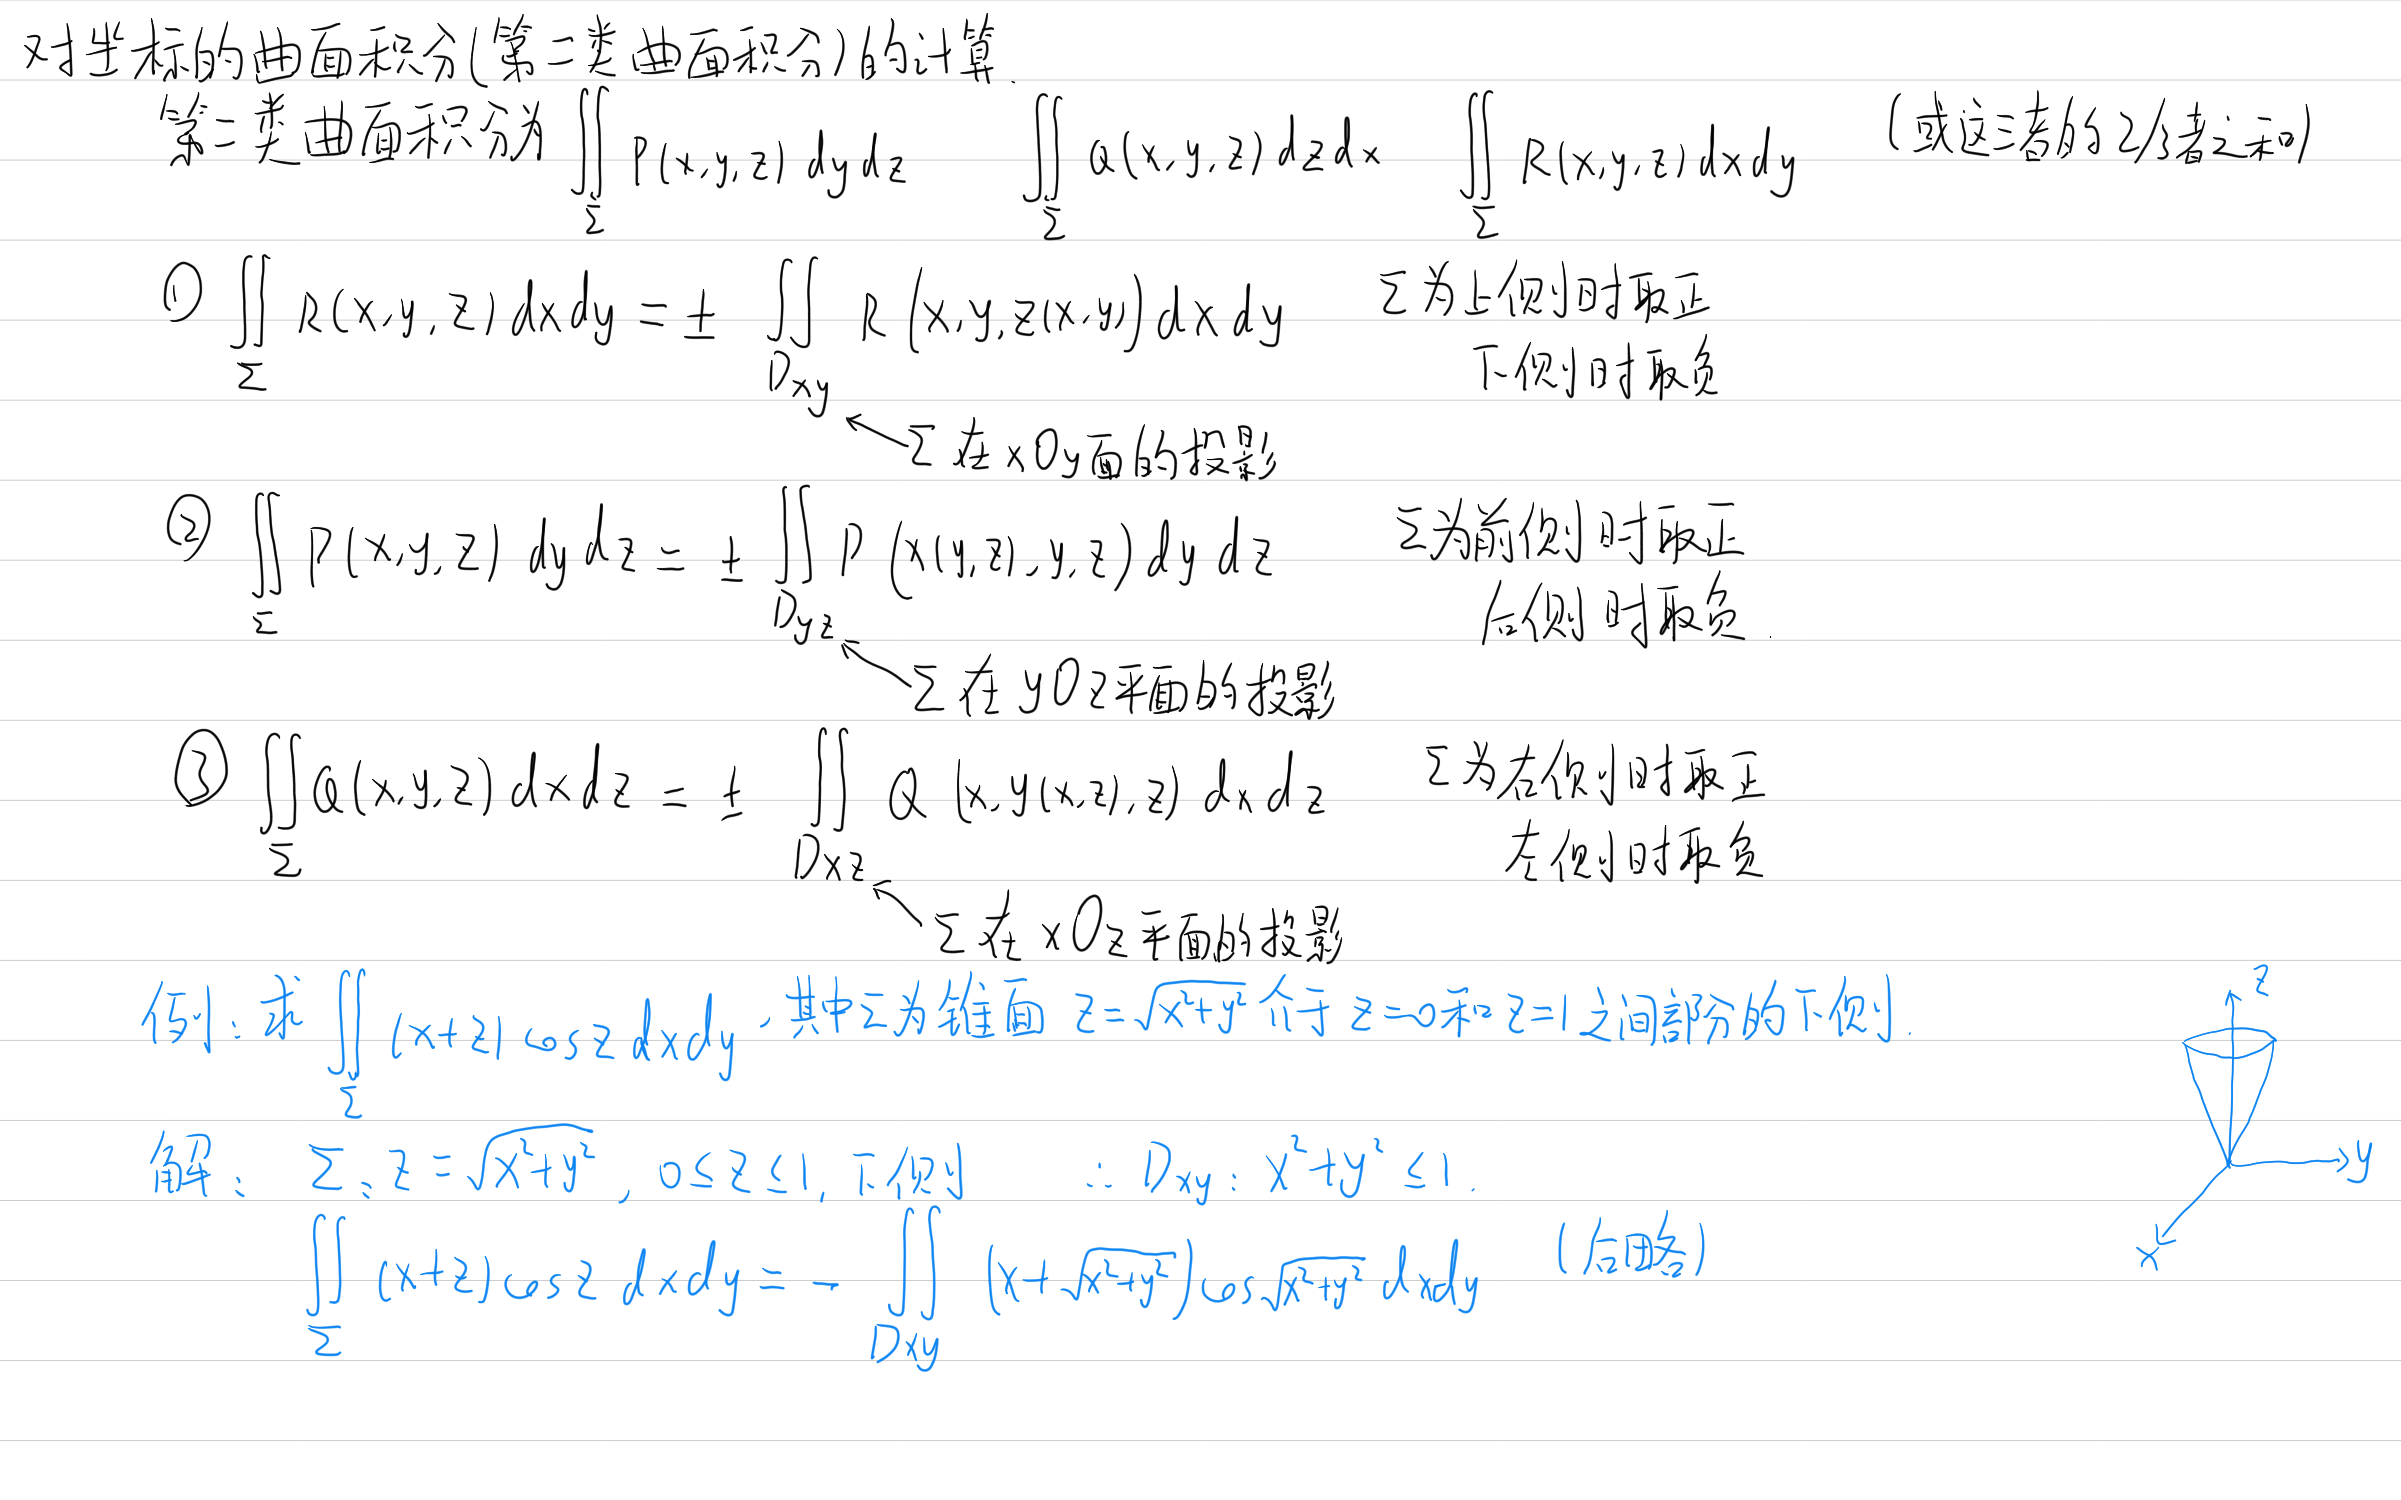 对坐标的曲面积分(第二类曲面积分)的计算.
第二类曲面积分为 ∬_Σ P(x,y,z)dydz ∬_Σ Q(x,y,z)dzdx ∬_Σ R(x,y,z)dxdy (或这三者的2/3者之和)
① ∬_Σ R(x,y,z)dxdy = ± ∬_Dxy R(x,y,z(x,y))dxdy Σ为上侧时取正
下侧时取负
Σ在xOy面的投影
② ∬_Σ P(x,y,z)dydz = ± ∬_Dyz P(x(y,z),y,z)dydz Σ为前侧时取正
后侧时取负.
Σ在yOz平面的投影
③ ∬_Σ Q(x,y,z)dxdz = ± ∬_Dxz Q(x,y(x,z),z)dxdz Σ为右侧时取正
左侧时取负
Σ在xOz平面的投影
例:求 ∬_Σ (x+z)cosz dxdy,其中Σ为锥面 z=√(x²+y²) 介于z=0和z=1之间部分的下侧.
z
解: Σ:z=√(x²+y²), 0≤z≤1,下侧 ∴ Dxy: x²+y²≤1.
y
∬_Σ (x+z)cosz dxdy = - ∬_Dxy (x+√(x²+y²))cos√(x²+y²) dxdy (后略)
x